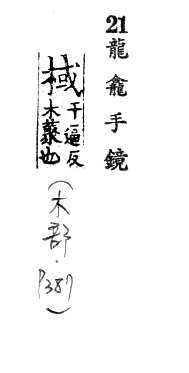 21龍龕手鏡
棫 于逼反
木叢也
(木部.P387)